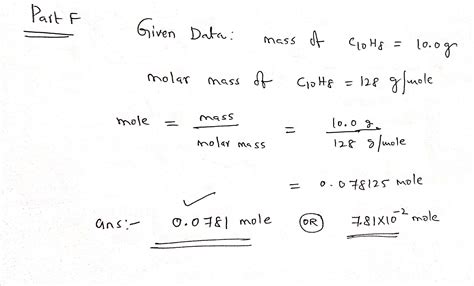 Part F
Given Data: mass of C10H8 = 10.0g
molar mass of C10H8 = 128 g/mole
mole = mass / molar mass = 10.0 g / 128 g/mole
= 0.078125 mole
ans:- 0.0781 mole OR 7.81X10^-2 mole